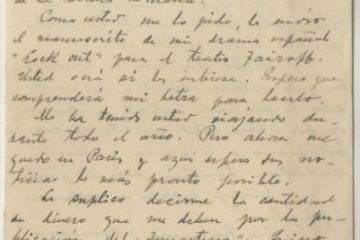 Como usted me lo pide, le envío
el manuscrito de mi drama español
"Lock out" para el teatro Fairoff.
Usted verá si les interese. Espero que
comprenderá mi letra para leerlo.
Me ha tenido usted viajando du-
rante todo el año. Pero ahora me
quedo en París y aquí espero sus no-
ticias lo más pronto posible.
Le suplico decirme la cantidad
de dinero que me deben por la pu-
blicación del